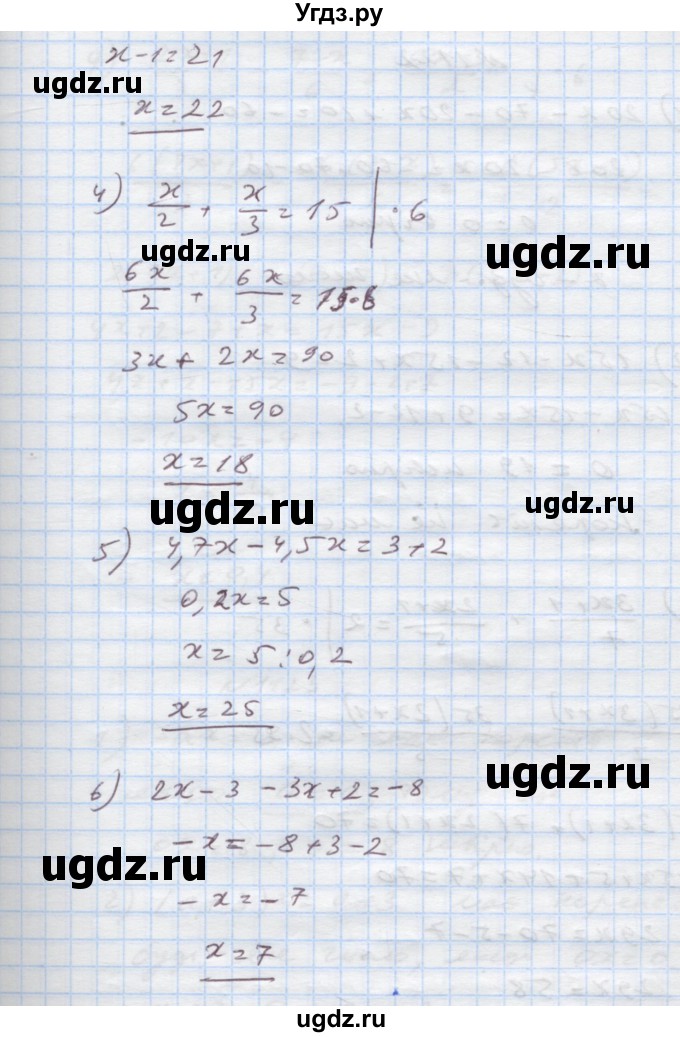 Угдз.ру
x-1=21
ugdz.ru
x=22
ugdz.ru
4) x/2 + x/3 = 15 | · 6
ugdz.ru
ugdz.ru
6x/2 + 6x/3 = 15·6
3x + 2x = 90
ugdz.ru
5x = 90
x = 18
ugdz.ru
ugdz.ru
5) 4,7x - 4,5x = 3+2
0,2x = 5
x = 5 : 0,2
ugdz.ru
x = 25
ugdz.ru
6) 2x - 3 - 3x + 2 = -8
-x = -8 + 3 - 2
ugdz.ru
-x = -7
ugdz.ru
x = 7
ugdz.ru